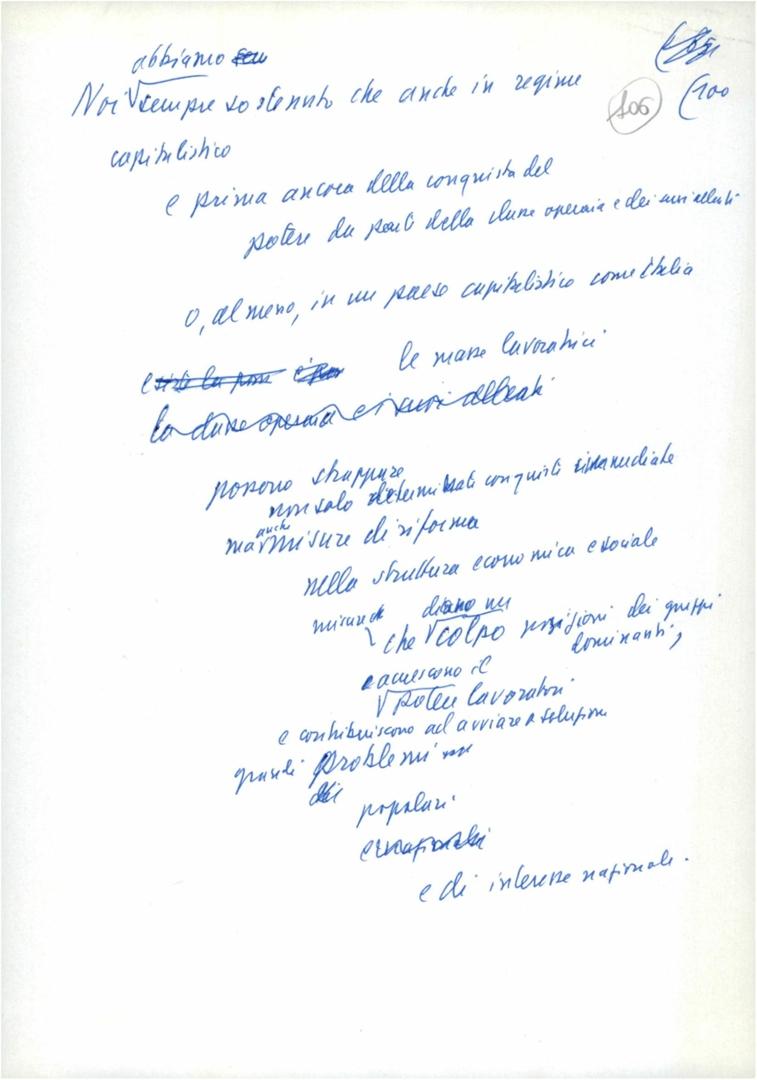 abbiamo
Noi sempre sostenuto che anche in regime
106
(100
capitalistico
e prima ancora della conquista del
potere da parte della classe operaia e dei suoi alleati
o, almeno, in un paese capitalistico come Italia
le masse lavoratrici
la classe operaia e i suoi alleati
possono strappare
non solo determinati conquiste immediate
anche
ma misure di riforma
nella struttura economica e sociale
misure diano un
che colpo posizioni dei gruppi
dominanti,
accrescono il
potere lavoratori
e contribuiscono ad avviare a soluzione
grandi problemi
popolari
e di interesse nazionale.